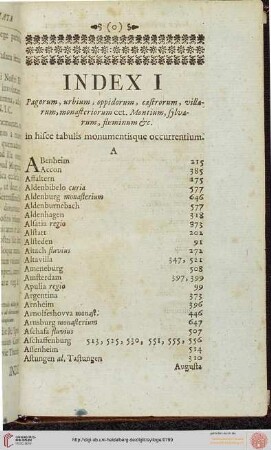 (o)
INDEX I
Pagorum, urbium, oppidorum, castrorum, villa-
rum, monasteriorum cet. Montium, sylva-
rum, fluminum &c.
in hisce tabulis monumentisque occurrentium.
A
Abenheim 215
Accon 385
Affaltern 275
Aldenbibelo curia 577
Aldenburg monasterium 646
Aldenburnebach 577
Aldenhagen 318
Alsatia regio 973
Alstatt 202
Alsteden 91
Altach fluvius 272
Altavilla 347, 521
Ameneburg 508
Amsterdam 397, 399
Apulia regio 99
Argentina 373
Arnheim 396
Arnoltsenhovva monast. 446
Arnsburg monasterium 647
Aschafa fluvius 507
Aschaffenburg 523, 525, 530, 551, 555, 556
Assenheim 514
Astungen al. Tastungen 320
Augusta